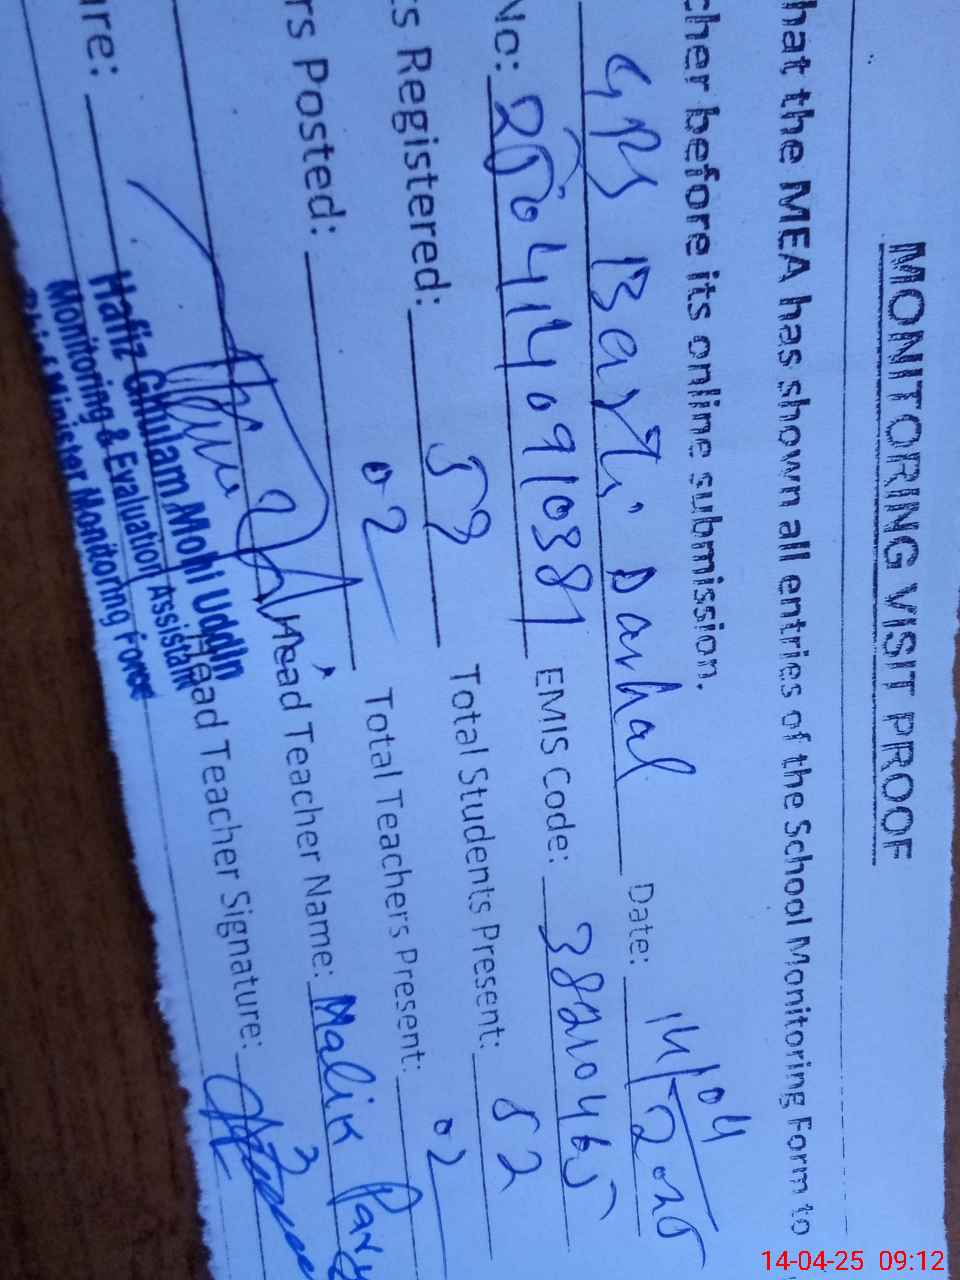 MONITORING VISIT PROOF
hat the MEA has shown all entries of the School Monitoring Form to
cher before its online submission.
GPS Basti Darhal Date: 14/04/2025
No: 2504140910381 EMIS Code: 38210465
s Registered: 58 Total Students Present: 52
rs Posted: 02 Total Teachers Present: 02
Head Teacher Name: Malik
ure: Head Teacher Signature:
Hafiz Ghulam Mohi Uddin
Monitoring & Evaluation Assistant
Chief Minister Monitoring Force
14-04-25 09:12